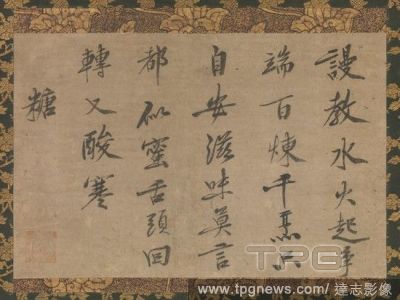 謾教水火起争
端百煉千熏只
自安滋味莫言
都似蜜舌頭回
轉又酸寒
糖
TPG
www.tpgnews.com / 達志影像